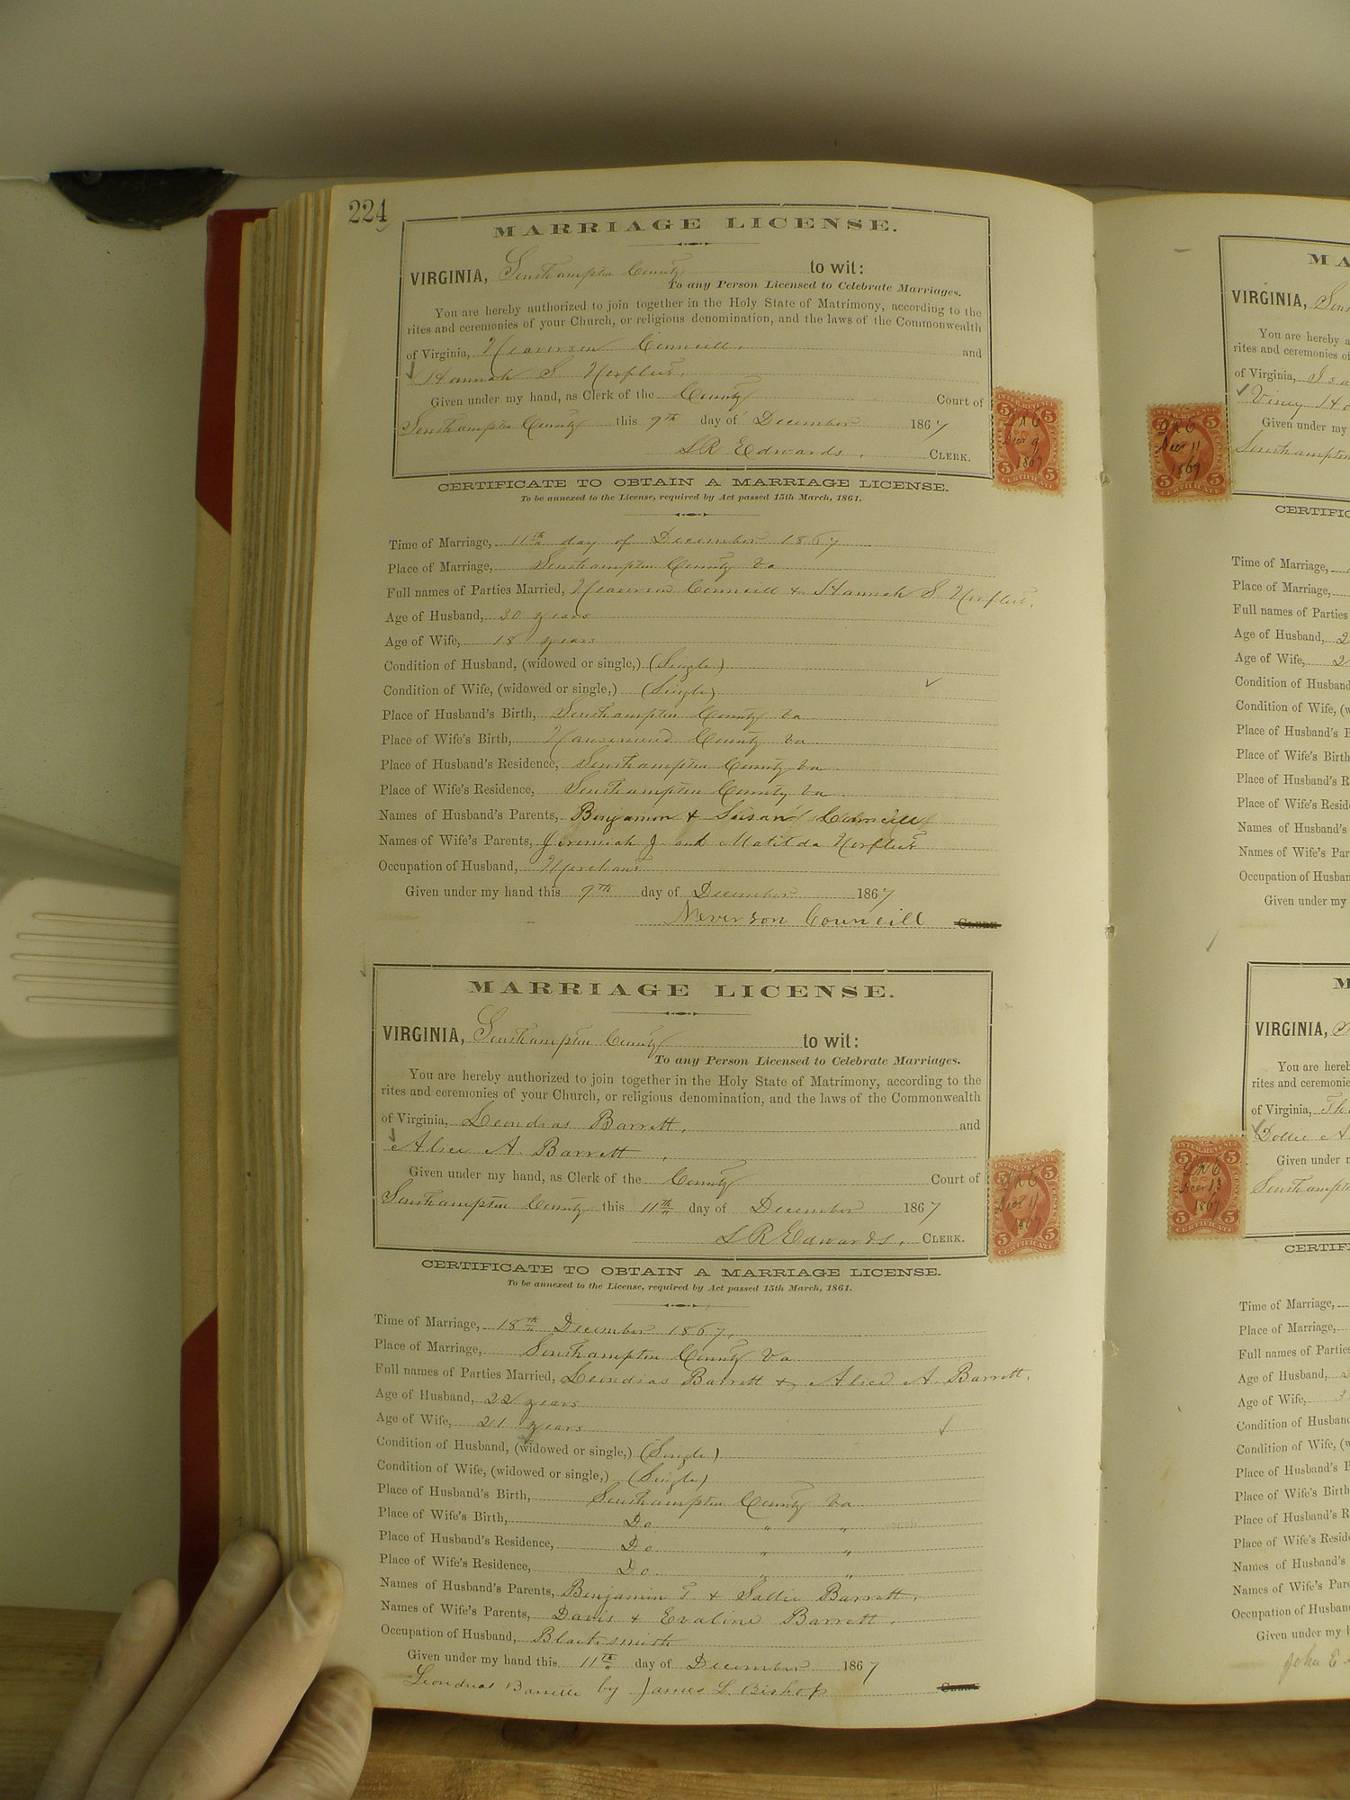 224
MARRIAGE LICENSE.
VIRGINIA, Southampton County to wit:
To any Person Licensed to Celebrate Marriages.
You are hereby authorized to join together in the Holy State of Matrimony, according to the
rites and ceremonies of your Church, or religious denomination, and the laws of the Commonwealth
of Virginia, Neverson Councill. and
Hannah S
Given under my hand, as Clerk of the County Court of
Southampton County this 9th day of December 1867
LR Edwards. CLERK.
CERTIFICATE TO OBTAIN A MARRIAGE LICENSE.
To be annexed to the License, required by Act passed 15th March, 1861.
Time of Marriage, 11th day of December 1867
Place of Marriage, Southampton County Va
Full names of Parties Married, Neverson Councill & Hannah S
Age of Husband, 30 years
Age of Wife, 18 years
Condition of Husband, (widowed or single,) (Single)
Condition of Wife, (widowed or single,) (Single)
Place of Husband's Birth, Southampton County Va
Place of Wife's Birth, Nansemond County Va
Place of Husband's Residence, Southampton County Va
Place of Wife's Residence, Southampton County Va
Names of Husband's Parents, Benjamin & Susan Councill
Names of Wife's Parents, Jeremiah J. and Matilda
Occupation of Husband, Merchant
Given under my hand this 9th day of December 1867
Neverson Councill
MARRIAGE LICENSE.
VIRGINIA, Southampton County to wit:
To any Person Licensed to Celebrate Marriages.
You are hereby authorized to join together in the Holy State of Matrimony, according to the
rites and ceremonies of your Church, or religious denomination, and the laws of the Commonwealth
of Virginia, Leondras Barrett. and
Alice A. Barrett.
Given under my hand, as Clerk of the County Court of
Southampton County this 11th day of December 1867
LR Edwards. CLERK.
CERTIFICATE TO OBTAIN A MARRIAGE LICENSE.
To be annexed to the License, required by Act passed 15th March, 1861.
Time of Marriage, 18th December 1867.
Place of Marriage, Southampton County Va
Full names of Parties Married, Leondras Barrett & Alice A. Barrett.
Age of Husband, 22 years
Age of Wife, 21 years
Condition of Husband, (widowed or single,) (Single)
Condition of Wife, (widowed or single,) (Single)
Place of Husband's Birth, Southampton County Va
Place of Wife's Birth, Do " "
Place of Husband's Residence, Do " "
Place of Wife's Residence, Do. " "
Names of Husband's Parents, Benjamin T & Sallie Barrett.
Names of Wife's Parents, Davis & Evaline Barrett.
Occupation of Husband, Blacksmith
Given under my hand this 11th day of December 1867
Leondras by James L. Bishop
MA
VIRGINIA,
You are hereby
rites and ceremonies of
of Virginia,
Viney
Given under my
Southampton
CERTIFIC
Time of Marriage,
Place of Marriage,
Full names of Parties
Age of Husband, 2
Age of Wife, 2
Condition of Husband
Condition of Wife, (w
Place of Husband's B
Place of Wife's Birth
Place of Husband's R
Place of Wife's Resid
Names of Husband's
Names of Wife's Par
Occupation of Husban
Given under my
M
VIRGINIA,
You are hereb
rites and ceremonie
of Virginia,
Dollie A
Given under
Southampt
CERTIF
Time of Marriage,
Place of Marriage,
Full names of Partie
Age of Husband,
Age of Wife, 3
Condition of Husban
Condition of Wife, (w
Place of Husband's B
Place of Wife's Birth
Place of Husband's R
Place of Wife's Resid
Names of Husband's
Names of Wife's Par
Occupation of Husban
Given under my h
John E